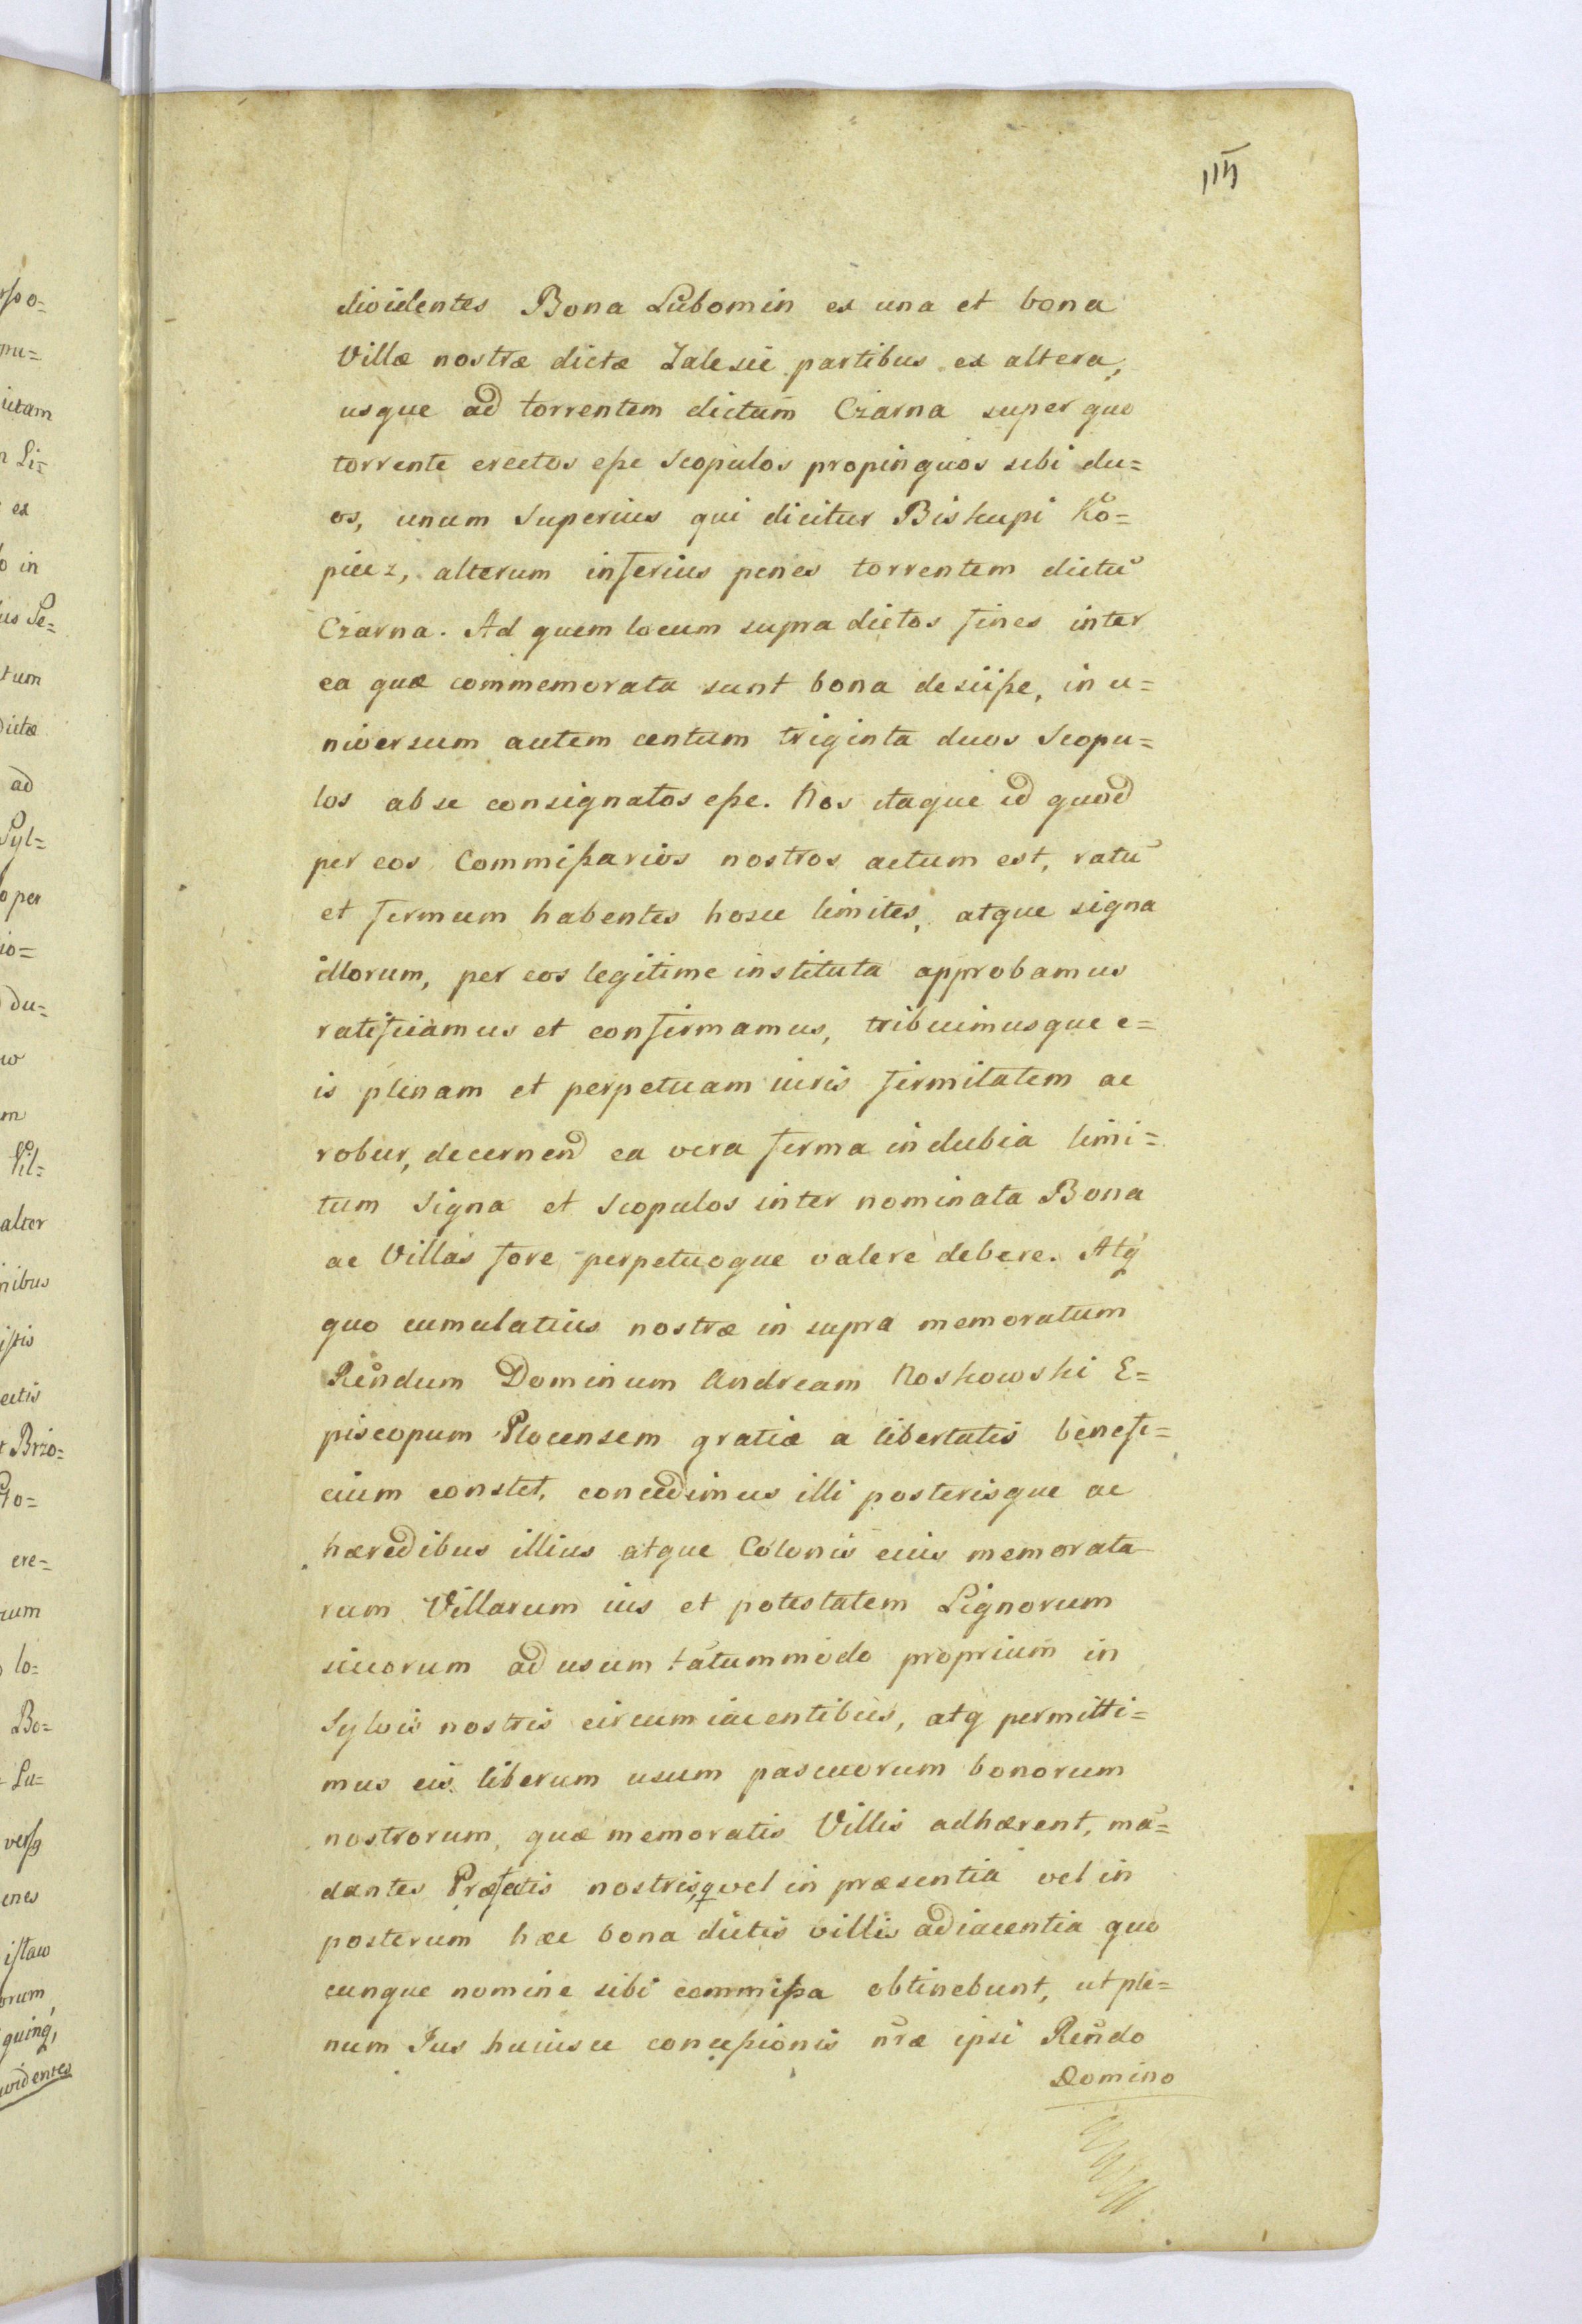 dividentes Bona Lubomin ex una et bona
Villæ nostræ dictæ Zalesie partibus ex altera,
usque ad torrentem dictum Czarna super quo
torrente erectos eße Scopulos propinquos sibi du=
os, unum Superius qui dicitur Biskupi Ko=
piec z, alterum inferius penes torrentem dictū
Czarna. Ad quem locum supra dictos fines inter
ea quæ commemorata sunt bona desiiße, in u=
niversum autem centum triginta duos Scopu=
los ab se consignatos eße. Nos itaque id quod
per eos Commißarios nostros actum est, ratū
et firmum habentes hosce limites, atque signa
illorum, per eos legitime instituta approbamus
ratificamus et confirmamus, tribuimusque e=
is plenam et perpetuam iuris firmitatem ac
robur, decernend ea vera firma indubia limi=
tum Signa et Scopulos inter nominata Bona
ac Villas fore perpetuoque valere debere. Atq
quo cumulatius nostræ in supra memoratum
Rendum Dominum Andream Noskowski E=
piscopum Plocensem gratiæ a libertatis benefi=
cium constet, concedimus illi posterisque ac
hæredibus illius atque Colonis eius memorata
rum Villarum ius et potestatem Lignorum
siccorum ad usum tātummodo proprium in
Sylvis nostris circumiacentibus, atq permitti=
mus eis liberum usum pascuorum bonorum
nostrorum, quæ memoratis Villis adhærent, mā=
dantes Præfectis nostris, q vel in præsentia vel in
posterum hæc bona dictis villis adiacentia quo
cunque nomine sibi commißa obtinebunt, ut ple=
num Ius huiusce conceßionis nræ ipsi Rendo
Domino